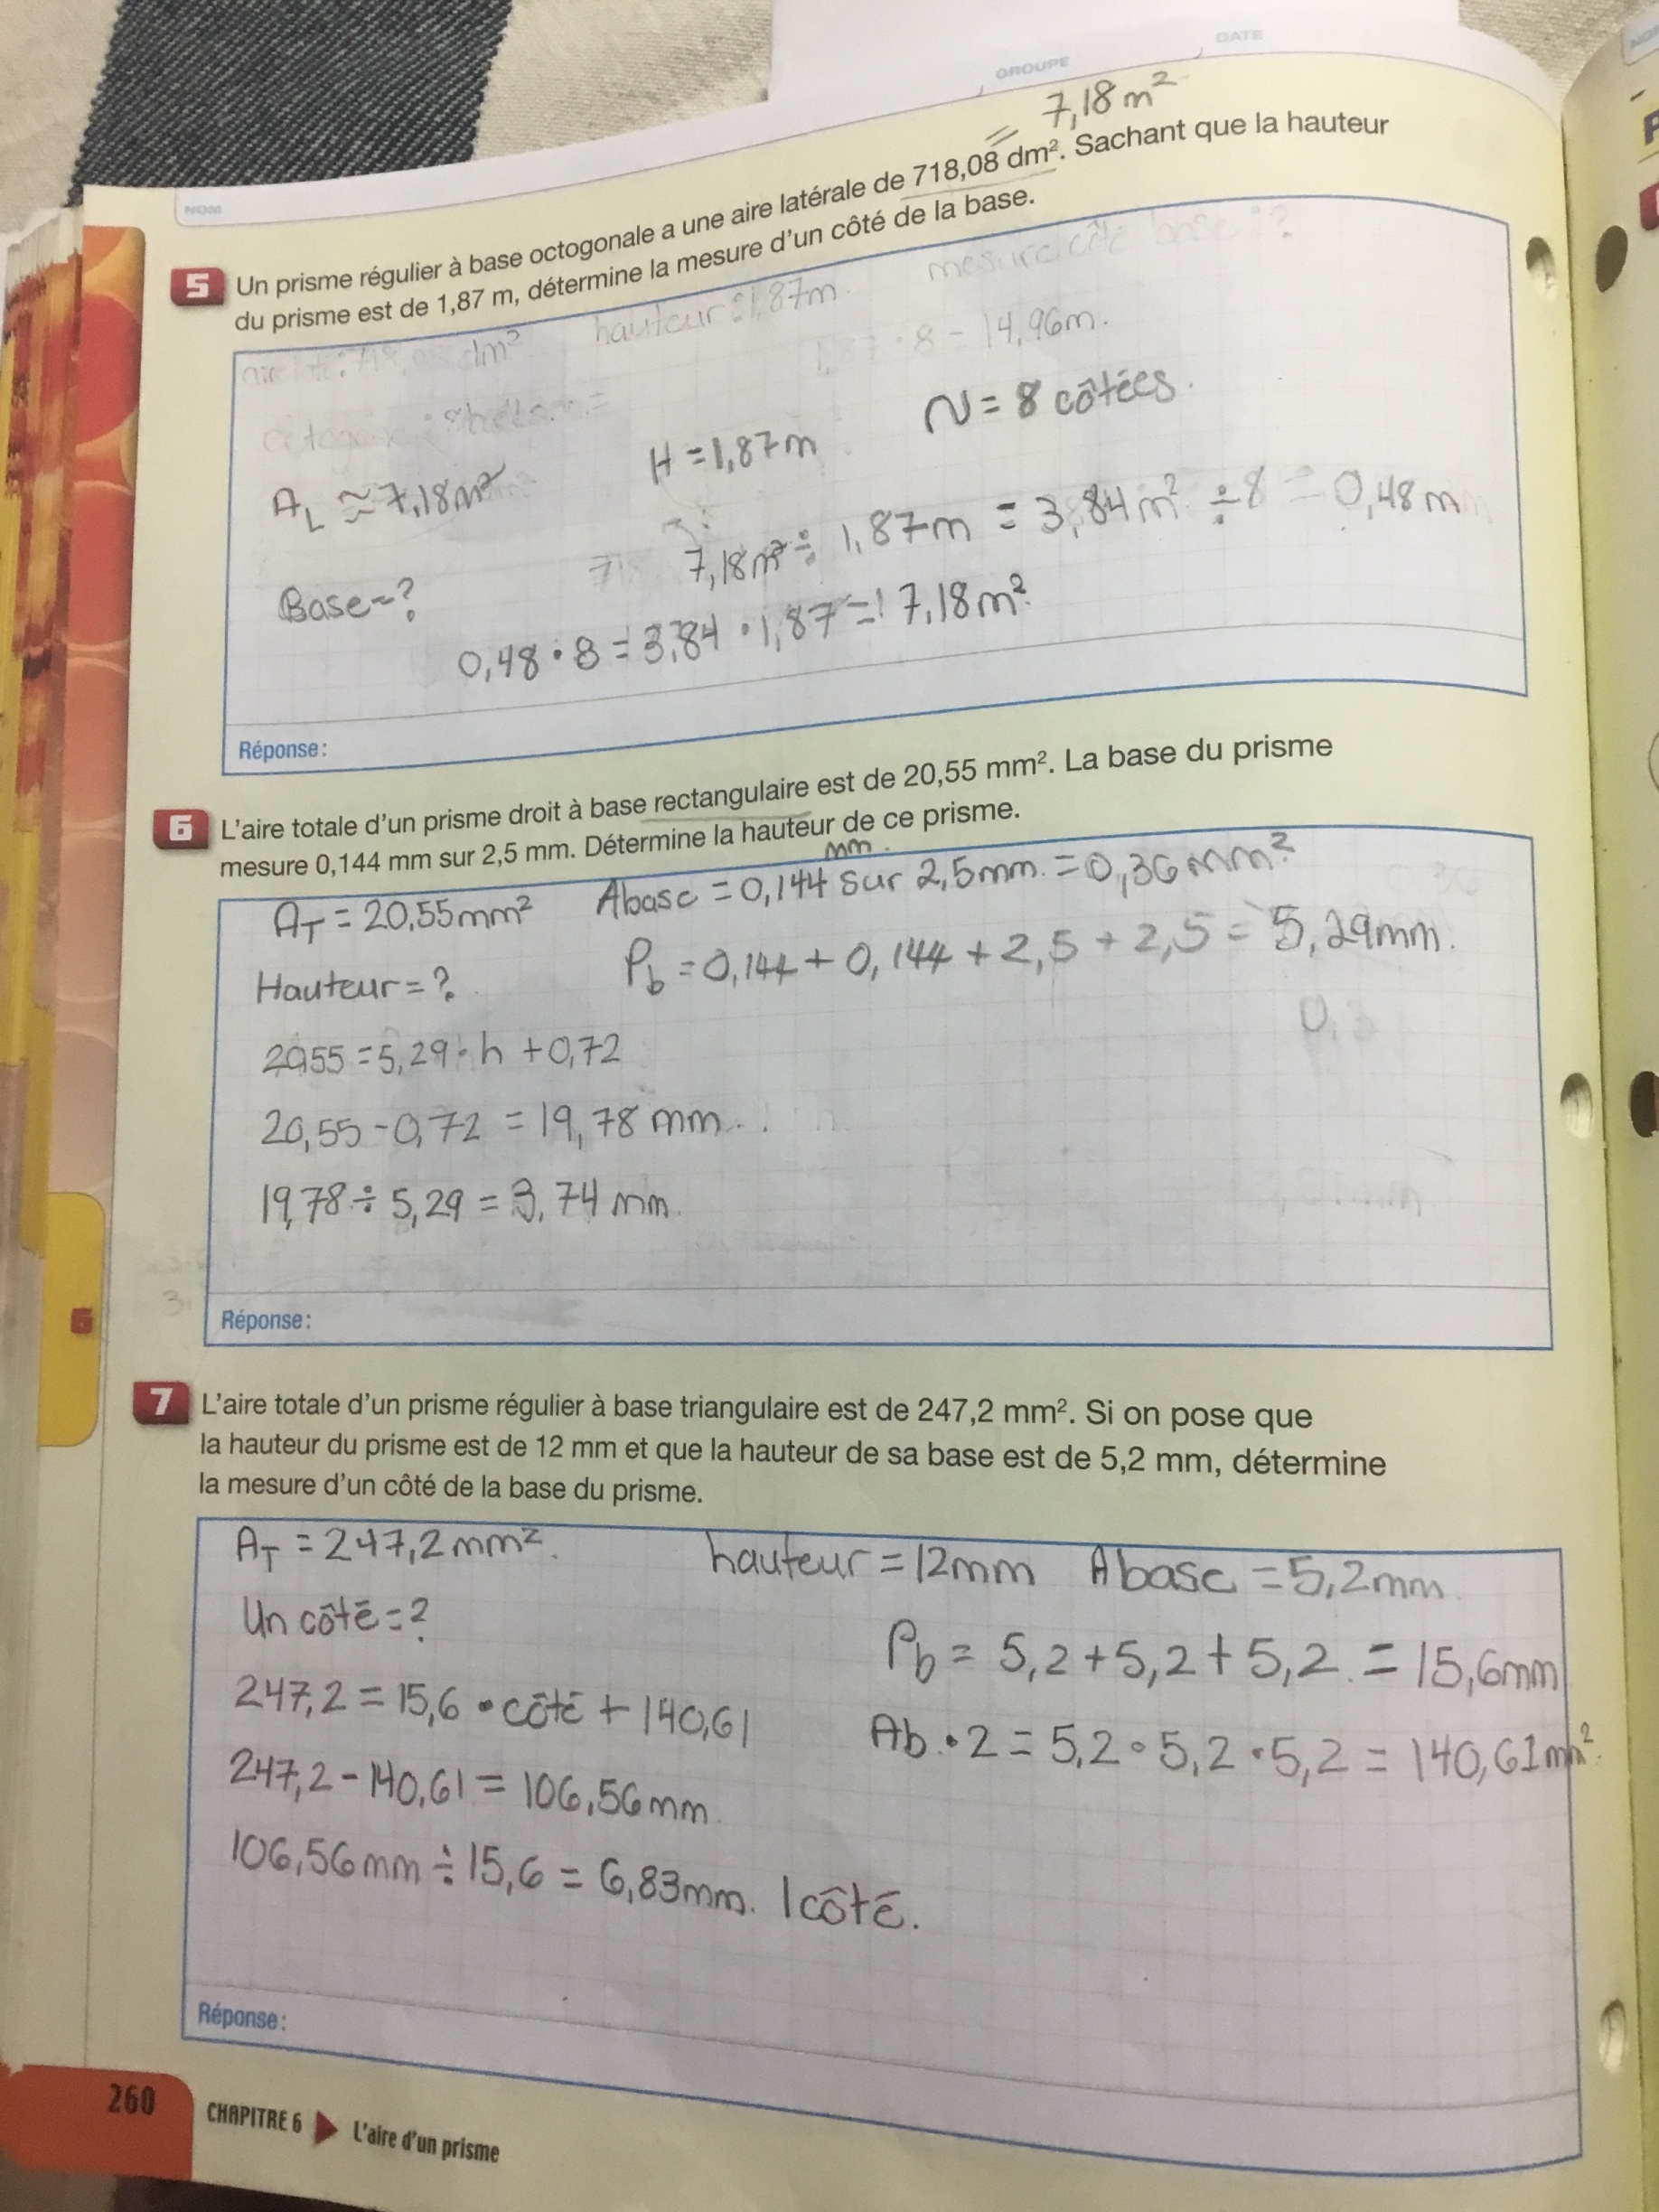 GROUPE
DATE
NOM
= 7,18 m²
5 Un prisme régulier à base octogonale a une aire latérale de 718,08 dm². Sachant que la hauteur
du prisme est de 1,87 m, détermine la mesure d'un côté de la base.
hauteur: 1,87m
mesure côté base = ?
8 = 14,96m.
N = 8 côtées.
H = 1,87m
A_L ≈ 7,18m²
7,18m² ÷ 1,87m = 3,84m² ÷ 8 = 0,48m
Base = ?
0,48 · 8 = 3,84 · 1,87 = 7,18m²
Réponse :
6 L'aire totale d'un prisme droit à base rectangulaire est de 20,55 mm². La base du prisme
mesure 0,144 mm sur 2,5 mm. Détermine la hauteur de ce prisme.
mm.
A_T = 20,55mm² Abase = 0,144 sur 2,5mm. = 0,36mm²
P_b = 0,144 + 0,144 + 2,5 + 2,5 = 5,29mm.
Hauteur = ?
20,55 = 5,29 · h + 0,72
20,55 - 0,72 = 19,78 mm.
19,78 ÷ 5,29 = 3,74 mm.
Réponse :
6
7 L'aire totale d'un prisme régulier à base triangulaire est de 247,2 mm². Si on pose que
la hauteur du prisme est de 12 mm et que la hauteur de sa base est de 5,2 mm, détermine
la mesure d'un côté de la base du prisme.
A_T = 247,2mm². hauteur = 12mm Abase = 5,2mm
Un côté = ?
P_b = 5,2 + 5,2 + 5,2 = 15,6mm
247,2 = 15,6 • côté + 140,61
Ab · 2 = 5,2 · 5,2 · 5,2 = 140,61mm²
247,2 - 140,61 = 106,56mm.
106,56mm ÷ 15,6 = 6,83mm. 1 côté.
Réponse :
260 CHAPITRE 6 L'aire d'un prisme